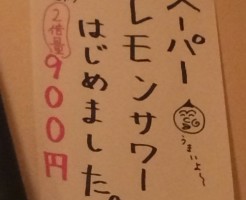 スーパー
レモンサワー
はじめました。
2倍量
900円
うまいよ〜